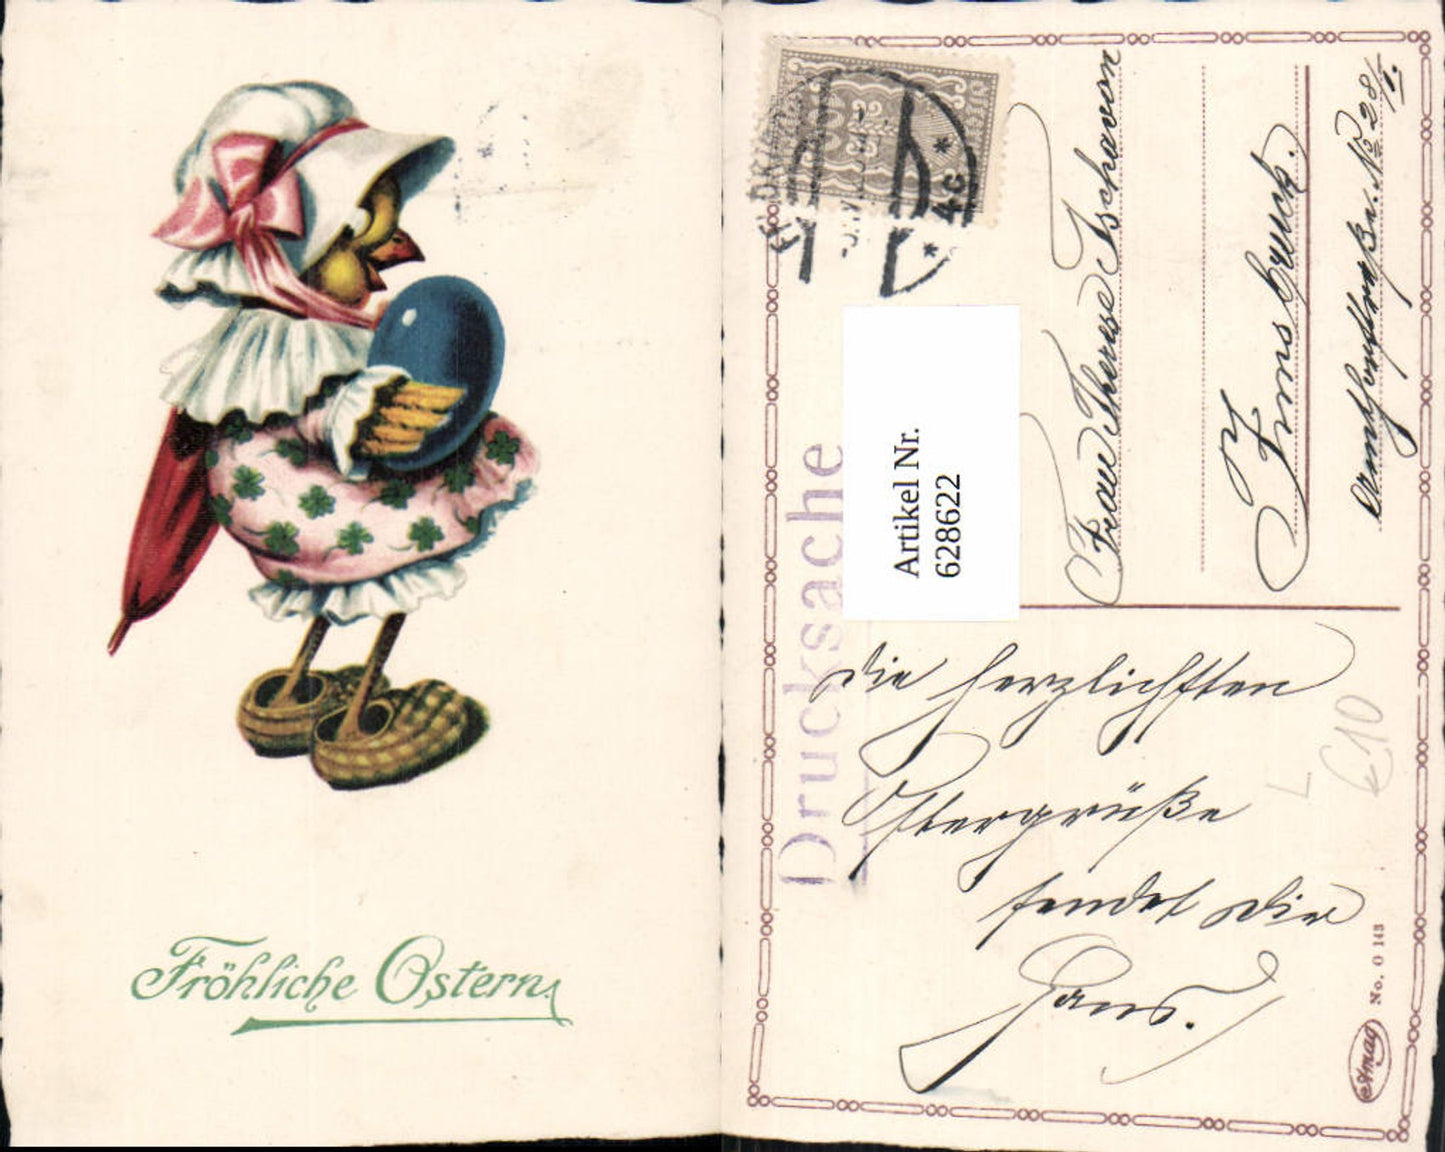 Fröhliche Ostern
Drucksache
Artikel Nr.
628622
100
4c
Frau Therese Tschavon
Innsbruck.
Amthorstraße No 28/I.
Die herzlichsten
Ostergrüße
sendet Dir
Hans.
€10
L
Amag
No. O 143